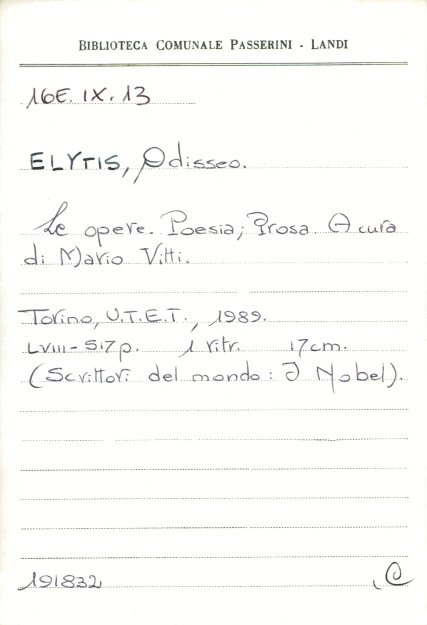 BIBLIOTECA COMUNALE PASSERINI - LANDI
16E. IX. 13
ELYTIS, Odisseo.
Le opere. Poesia; Prosa. A cura
di Mario Vitti.
Torino, U.T.E.T., 1989.
LVIII-517p. 1 ritr. 17cm.
(Scrittori del mondo: I Nobel).
191832